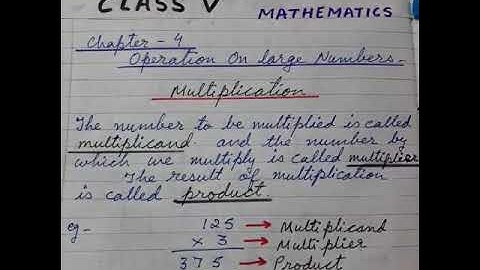 CLASS V
MATHEMATICS
Chapter - 4
Operation On large Numbers-
Multiplication
The number to be multiplied is called
multiplicand and the number by
which we multiply is called multiplier
The result of multiplication
is called product
eg- 125 → Multiplicand
x 3 → Multiplier
375 → Product